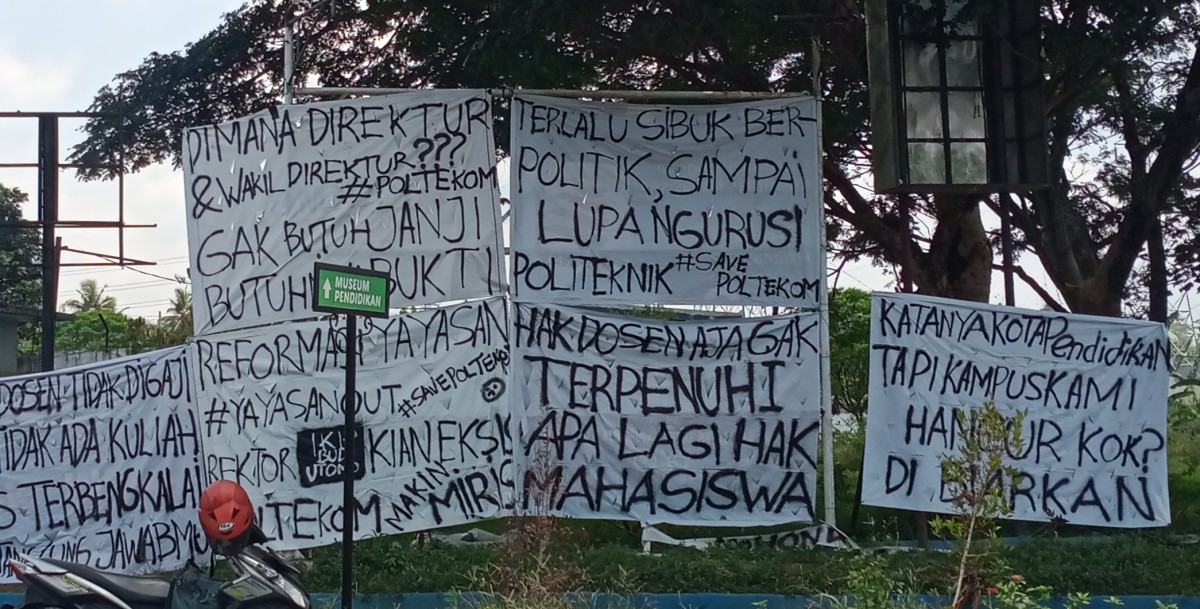 DIMANA DIREKTUR
& WAKIL DIREKTUR ???
#POLTEKOM
GAK BUTUH JANJI
BUTUH BUKTI
TERLALU SIBUK BER-
POLITIK, SAMPAI
LUPA NGURUSI
POLITEKNIK #SAVE
POLTEKOM
MUSEUM
PENDIDIKAN
DOSEN TIDAK DIGAJI
TIDAK ADA KULIAH!
TERBENGKALAI
JAWABMU
REFORMASI YAYASAN
#YAYASAN OUT #SAVEPOLTEKOM
REKTOR KIAN EKSIS
MAKIN MIRIS
HAK DOSEN AJA GAK
TERPENUHI
APA LAGI HAK
MAHASISWA
KATANYA KOTA PENDIDIKAN
TAPI KAMPUS KAMI
HANCUR KOK?
DI BIARKAN